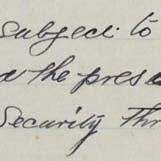 subject to
the pres
Security Thr